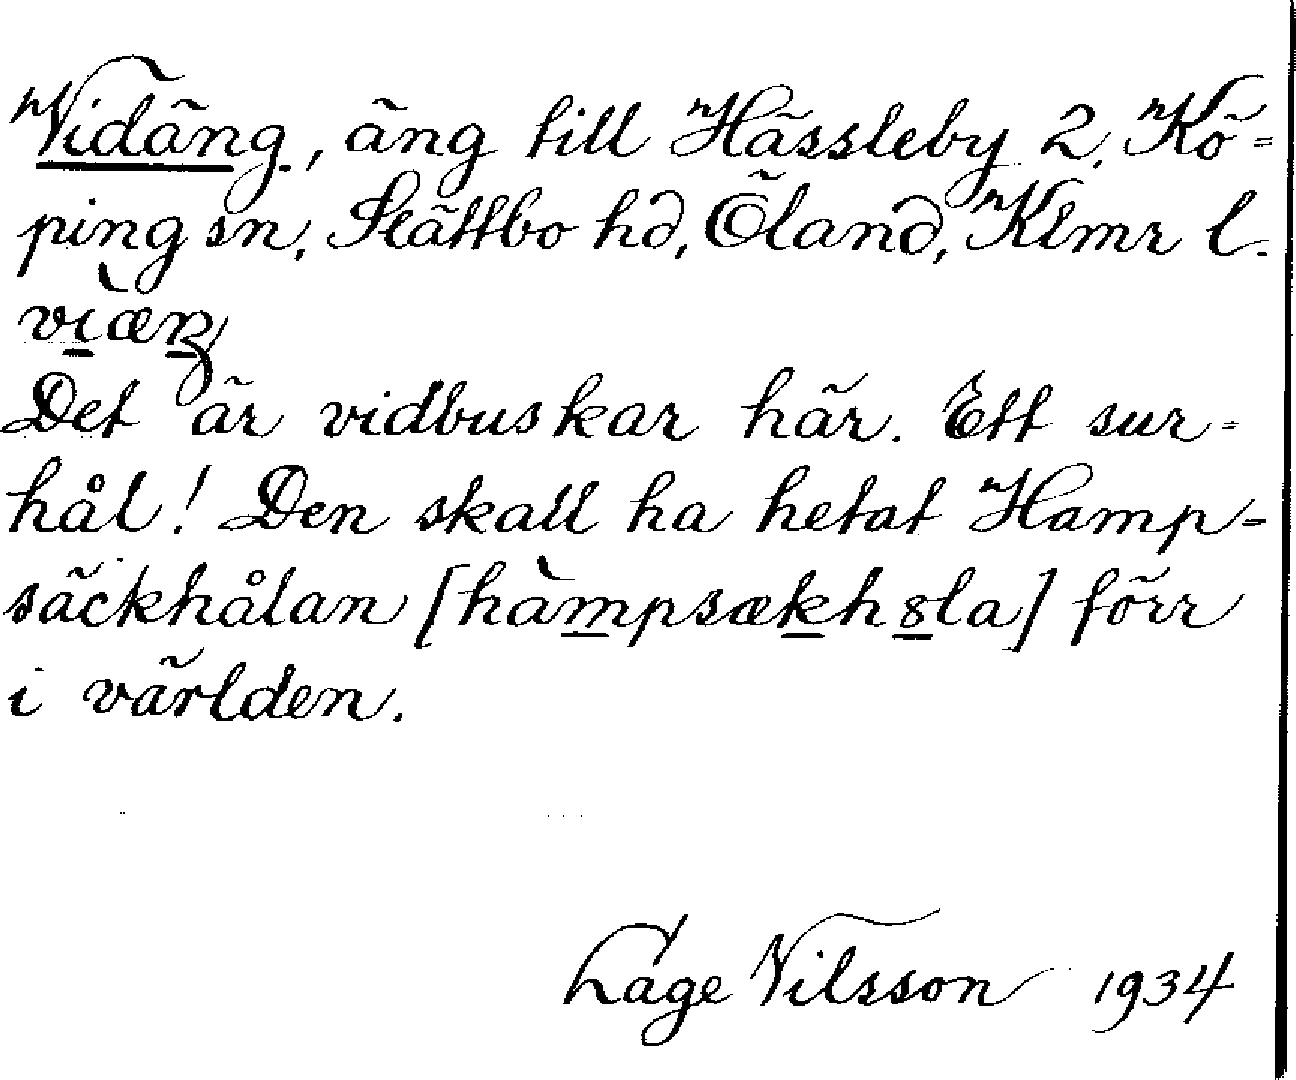 Vidäng, äng till Hässleby 2, Kö=
ping sn, Slättbo hd, Öland, Klmr l.
Det är vidbuskar här. Ett sur=
hål! Den skall ha hetat Hamp=
säckhålan [hàmpsækh8la] förr
i världen.
Låge Nilsson 1934